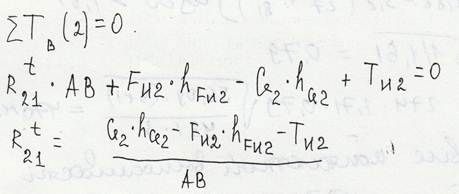 ΣT_B(2)=0.
R^t_21 · AB + F_и2 · h_Fи2 − G_2 · h_G2 + T_и2 = 0
R^t_21 = (G_2 · h_G2 − F_и2 · h_Fи2 − T_и2) / AB